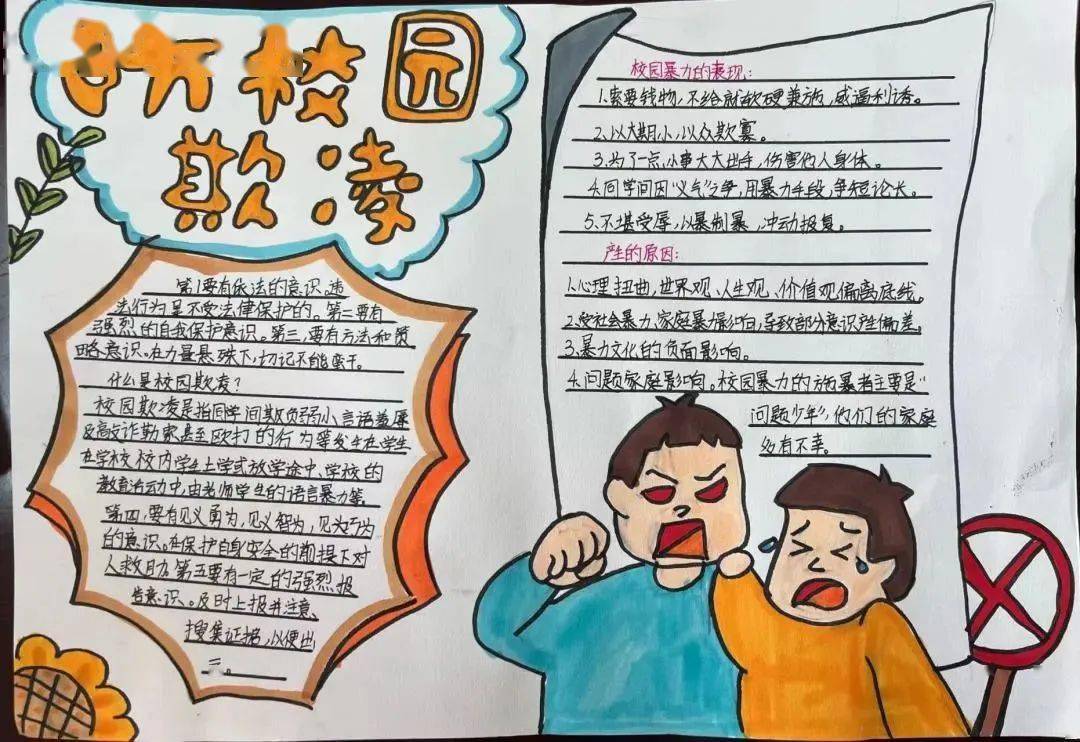 防校园
欺凌
第1要有依法的意识、违
法行为是不受法律保护的。第二要有
强烈的自我保护意识。第三、要有方法和策
略意识。在力量悬殊下,切记不能蛮干。
什么是校园欺凌?
校园欺凌是指同学间欺负弱小、言语羞辱
及敲诈勒索甚至殴打的行为等发生在学生
在学校校内学生上学或放学途中、学校的
教育活动中,由老师学生的语言暴力等。
第四,要有见义勇为,见义智为,见义巧为
的意识。在保护自身安全的前提下对
人救助。第五要有一定的强烈报
告意识。及时上报并注意、
搜集证据,以便出
校园暴力的表现:
1.索要钱物,不给就软硬兼施,威逼利诱。
2.以大期小,以众欺寡。
3.为了一点小事大大出手,伤害他人身体。
4.同学间因"义气"之争,用暴力手段,争短论长。
5.不堪受辱,以暴制暴,冲动报复。
产生的原因:
1.心理扭曲,世界观、人生观、价值观偏离底线。
2.受社会暴力、家庭暴操影响,导致部分意识产偏差。
3.暴力文化的负面影响。
4.问题家庭影响。校园暴力的施暴者主要是"
问题少年",他们的家庭
多有不幸。